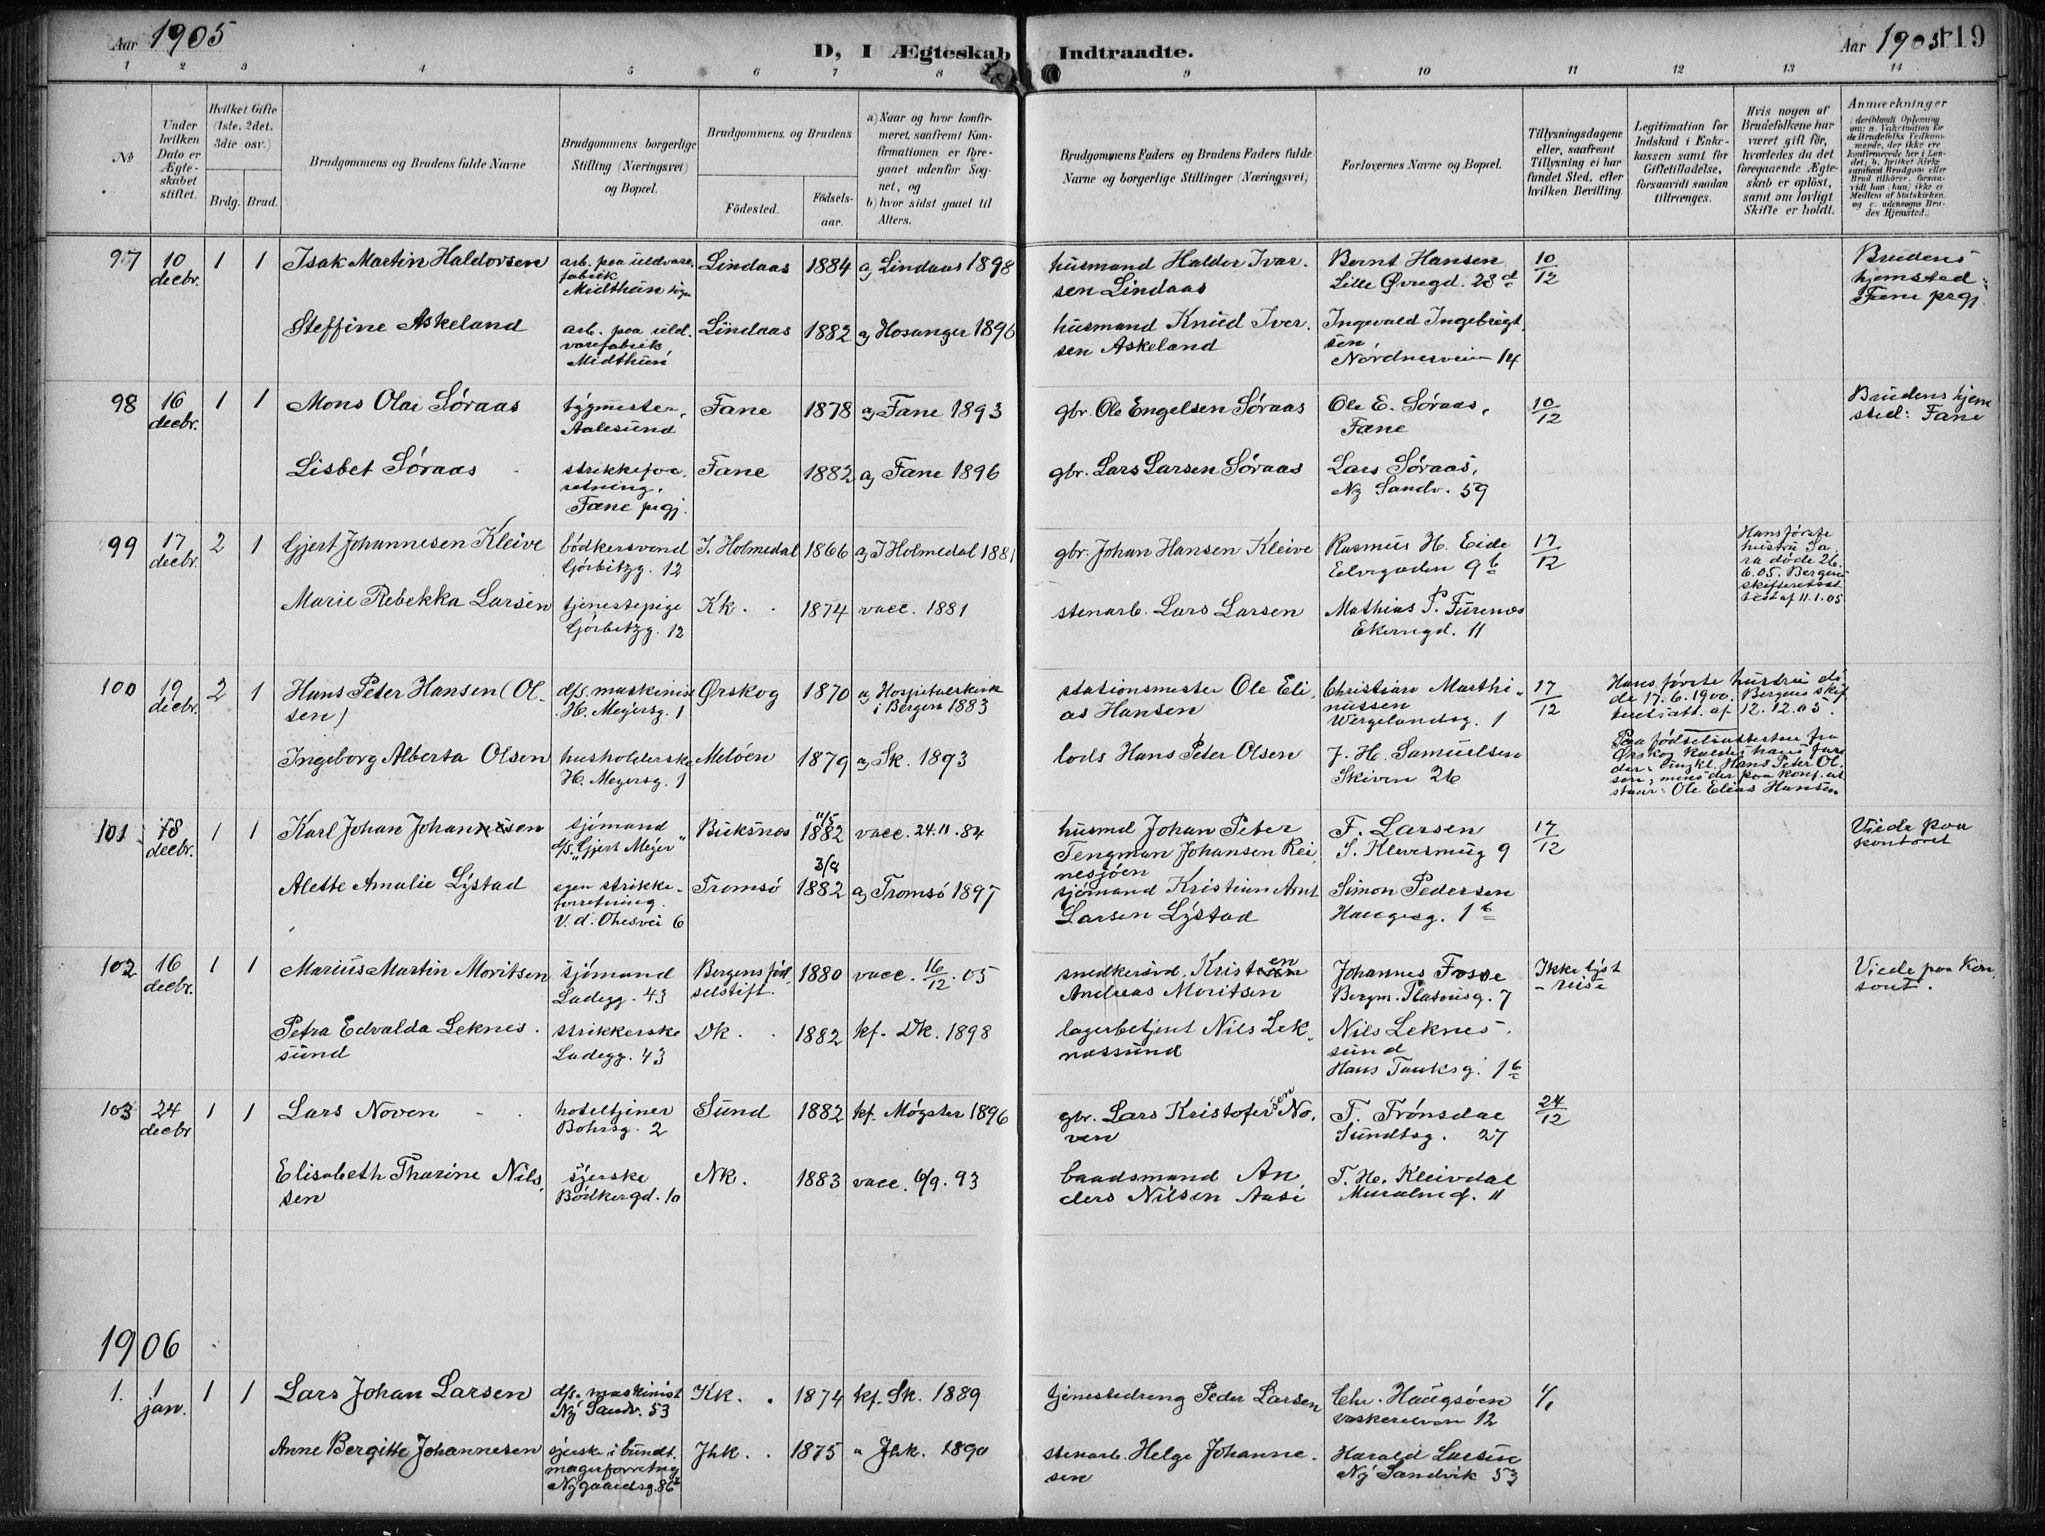 Aar 1905
D, I Ægteskab Indtraadte.
Aar 1905
119
1 2 3 4 5 6 7 8 9 10 11 12 13 14
No
Under hvilken Dato er Ægteskabet stiftet.
Hvilket Gifte (1ste, 2det, 3die osv.)
Brdg. Brud.
Brudgommens og Brudens fulde Navne
Brudgommens borgerlige Stilling (Næringsvei) og Bopæl.
Brudgommens og Brudens
Fødested.
Fødselsaar.
a) Naar og hvor konfirmeret, saafremt Konfirmationen er foregaaet udenfor Sognet, og
b) hvor sidst gaaet til Alters.
Brudgommens Faders og Brudens Faders fulde Navne og borgerlige Stillinger (Næringsvei)
Forlovernes Navne og Bopæl.
Tillysningsdagene eller, saafremt Tillysning ei har fundet Sted, efter hvilken Bevilling.
Legitimation for Indskud i Enkekassen samt for Giftetilladelse, forsaavidt saadan tiltrænges.
Hvis nogen af Brudefolkene har været gift før, hvorledes da det foregaaende Ægteskab er opløst, samt om lovligt Skifte er holdt.
Anmærkninger
97 10 decbr. 1 1 Isak Martin Haldorsen
arb. paa uldvarefabrik
Midthun
Lindaas 1884 a) Lindaas 1898
husmand Haldor Ivarsen Lindaas
Bernt Hansen
Lille Øvregd. 28 d
10/12
Brudens hjemsted: Fane prgj.
Steffine Askeland
arb. paa uldvarefabrik
Midthun
Lindaas 1882 a) Hosanger 1896
husmand Knud Iversen Askeland
Ingevald Ingebrigtsen
Nordnesveien 14
98 16 decbr. 1 1 Mons Olai Søraas
bygmester,
Aalesund
Fane 1878 a) Fane 1893
gbr. Ole Engelsen Søraas
Ole E. Søraas,
Fane
10/12
Brudens hjemsted: Fane
Lisbet Søraas
strikkeforretning,
Fane prgj.
Fane 1882 a) Fane 1896
gbr. Lars Larsen Søraas
Lars Søraas,
Ny Sandv. 59
99 17 decbr. 2 1 Gjert Johannesen Kleive
bødkersvend
Gørbitzg. 12
I. Holmedal 1866 a) I Holmedal 1881
gbr. Johan Hansen Kleive
Rasmus H. Eide
Elvegaden 9 b
17/12
Hans første hustru Sara døde 26.6.05. Bergens skifteretsattest af 11.1.05
Marie Rebekka Larsen
tjenestepige
Gørbitzg. 12
Kk. 1874 vacc. 1881
stenarb. Lars Larsen
Mathias P. Furenæs
Ekerengd. 11
100 19 decbr. 2 1 Hans Peter Hansen (Olsen)
d/s. maskinist
H. Meyersg. 1
Ørskog 1870 a) Hospitalskirke i Bergen 1883
stationsmester Ole Elias Hansen
Christian Marthinussen
Wergelandsg. 1
17/12
Hans første hustru døde 17.6.1900. Bergens skifteretsatt. af 12.12.05.
Paa fødselsattesten fra Ørskog kaldes hans fader: Hans Peter Olsen, mens der paa konf. att staar: Ole Elias Hansen
Ingeborg Alberta Olsen
husholderske
H. Meyersg. 1
Meløen 1879 a) Sk. 1893
lods Hans Peter Olsen
J. H. Samuelsen
Skiven 26
101 18 decbr. 1 1 Karl Johan Johansen
sjømand
d/s. "Gjert Meyer"
Buksnes 11/5 1882 vacc. 24.11.84
husmd Johan Peter Tengman Johansen Reinesjøen
F. Larsen
S. Klevesmug 9
17/12
Viede paa kontoret
Alette Amalie Lystad
egen strikkeforretning.
V. d. Ohesvei 6
Tromsø 3/8 1882 a) Tromsø 1897
sjømand Kristian Arnt Larsen Lystad
Simon Pedersen
Haugesg. 1 b
102 16 decbr. 1 1 Marius Martin Moritsen
sjømand
Ladegg. 43
Bergens fødselstift. 1880 vacc. 16/12.05
snedkersvd. Kristen Andreas Moritsen
Johannes Fosse
Bergm. Platousg. 7
Ikke lyst - reise
Viede paa kontont.
Petra Edvalda Leknessund
strikkerske
Ladegg. 43
Dk. 1882 kf. Dk. 1898
lagerbetjent Nils Leknessund
Nils Leknessund
Hans Tanksg. 1 b
103 24 decbr 1 1 Lars Noven
hoteltjener
Bohrsg. 2
Sund 1882 kf. Møgster 1896
gbr. Lars Kristofersen Noven
T. Trønsdal
Sundtsg. 27
24/12
Elisabeth Tharine Nilssen
syerske
Bødkergd. 10
Nk. 1883 vacc. 6/9.93
baadsmand Anders Nilsen Aase
T. H. Kleivdal
Muralmg. 11
1906
1. 1 jan. 1 1 Lars Johan Larsen
d/s. maskinist
Ny Sandv. 53
Kk. 1874 kf. Sk. 1889
tjenestedreng Peder Larsen
Chr. Haugsøen
Vaskerelven 12
1/1
Anne Bergitte Johannesen
syerske i bundtmagerforretng
Nygaardsg. 86
Jhk. 1875 a Jhk. 1890
stenarb. Helge Johannesen
Harald Larsen
Ny Sandvik 53